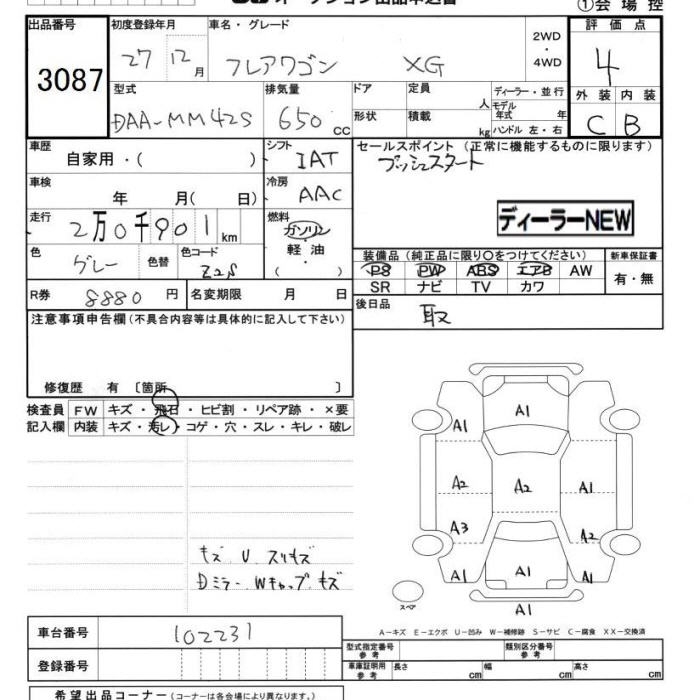 オークション出品申込書
①会場控
出品番号 3087
初度登録年月 27 12月
車名・グレード フレアワゴン XG
2WD・4WD
評価点 4
外装 内装
C B
型式 DAA-MM42S
排気量 650cc
ドア 定員 人
形状 積載 kg
ディーラー・並行
モデル年式 年
ハンドル 左・右
車歴 自家用・( )
シフト IAT
セールスポイント (正常に機能するものに限ります)
プッシュスタート
車検 年 月( 日)
冷房 AAC
走行 2万0千901km
燃料 ガソリン・軽油・( )
ディーラーNEW
色 グレー 色替 色コード Z2S
装備品 (純正品に限り○をつけてください)
新車保証書
PS PW ABS エアB AW
SR ナビ TV カワ
有・無
R券 8880円
名変期限 月 日
後日品 取
注意事項申告欄 (不具合内容等は具体的に記入して下さい)
修復歴 有 〔箇所 〕
検査員 FW キズ・飛石・ヒビ割・リペア跡・×要
記入欄 内装 キズ・汚レ・コゲ・穴・スレ・キレ・破レ
A1
A1 A1
A2 A2 A1
A3 A2
A1 A1 A1
A1
キズ U スリキズ
Dミラー Wキャップ キズ
スペア
A－キズ E－エクボ U－凹み W－補修跡 S－サビ C－腐食 XX－交換済
車台番号 102231
登録番号
型式指定番号 参考
類別区分番号 参考
車庫証明用 参考 長さ cm 幅 cm 高さ cm
希望出品コーナー (コーナーは各会場により異なります。)